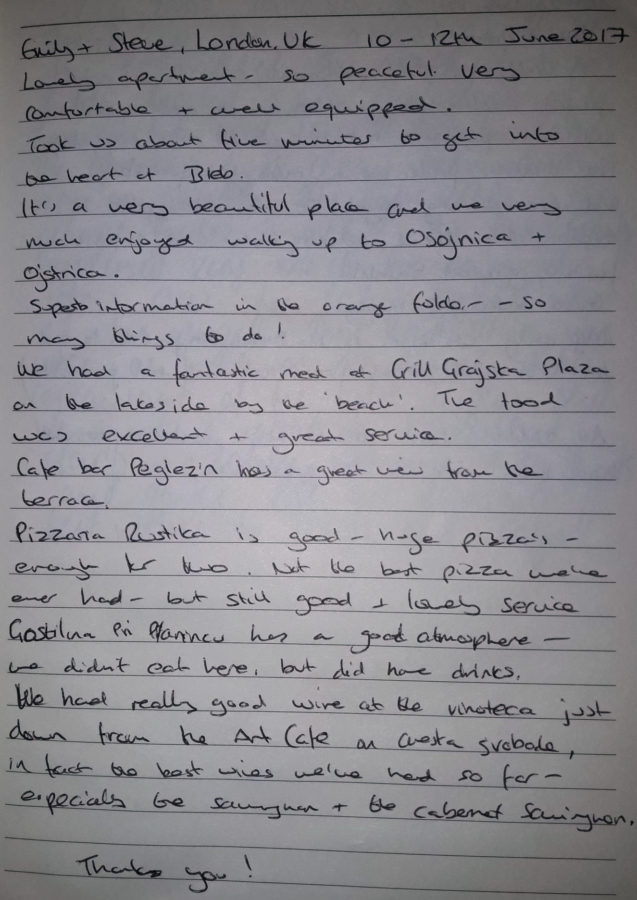 Emily + Steve, London, UK 10 - 12th June 2017
Lovely apartment - so peaceful. Very
comfortable + well equipped.
Took us about five minutes to get into
the heart of Bled.
It's a very beautiful place and we very
much enjoyed walking up to Osojnica +
Ojstrica.
Superb information in the orange folder - so
many things to do!
We had a fantastic meal at Grill Grajska Plaza
on the lakeside by the 'beach'. The food
was excellent + great service.
Cafe bar Peglez'n has a great view from the
terrace.
Pizzaria Rustika is good - huge pizza's -
enough for two. Not the best pizza we've
ever had - but still good + lovely service
Gostilna Pri Planincu has a good atmosphere -
we didn't eat here, but did have drinks.
We had really good wine at the vinoteca just
down from the Art Cafe on cesta svobode,
in fact the best wines we've had so far -
especially the sauvignon + the cabernet sauvignon.
Thank you!